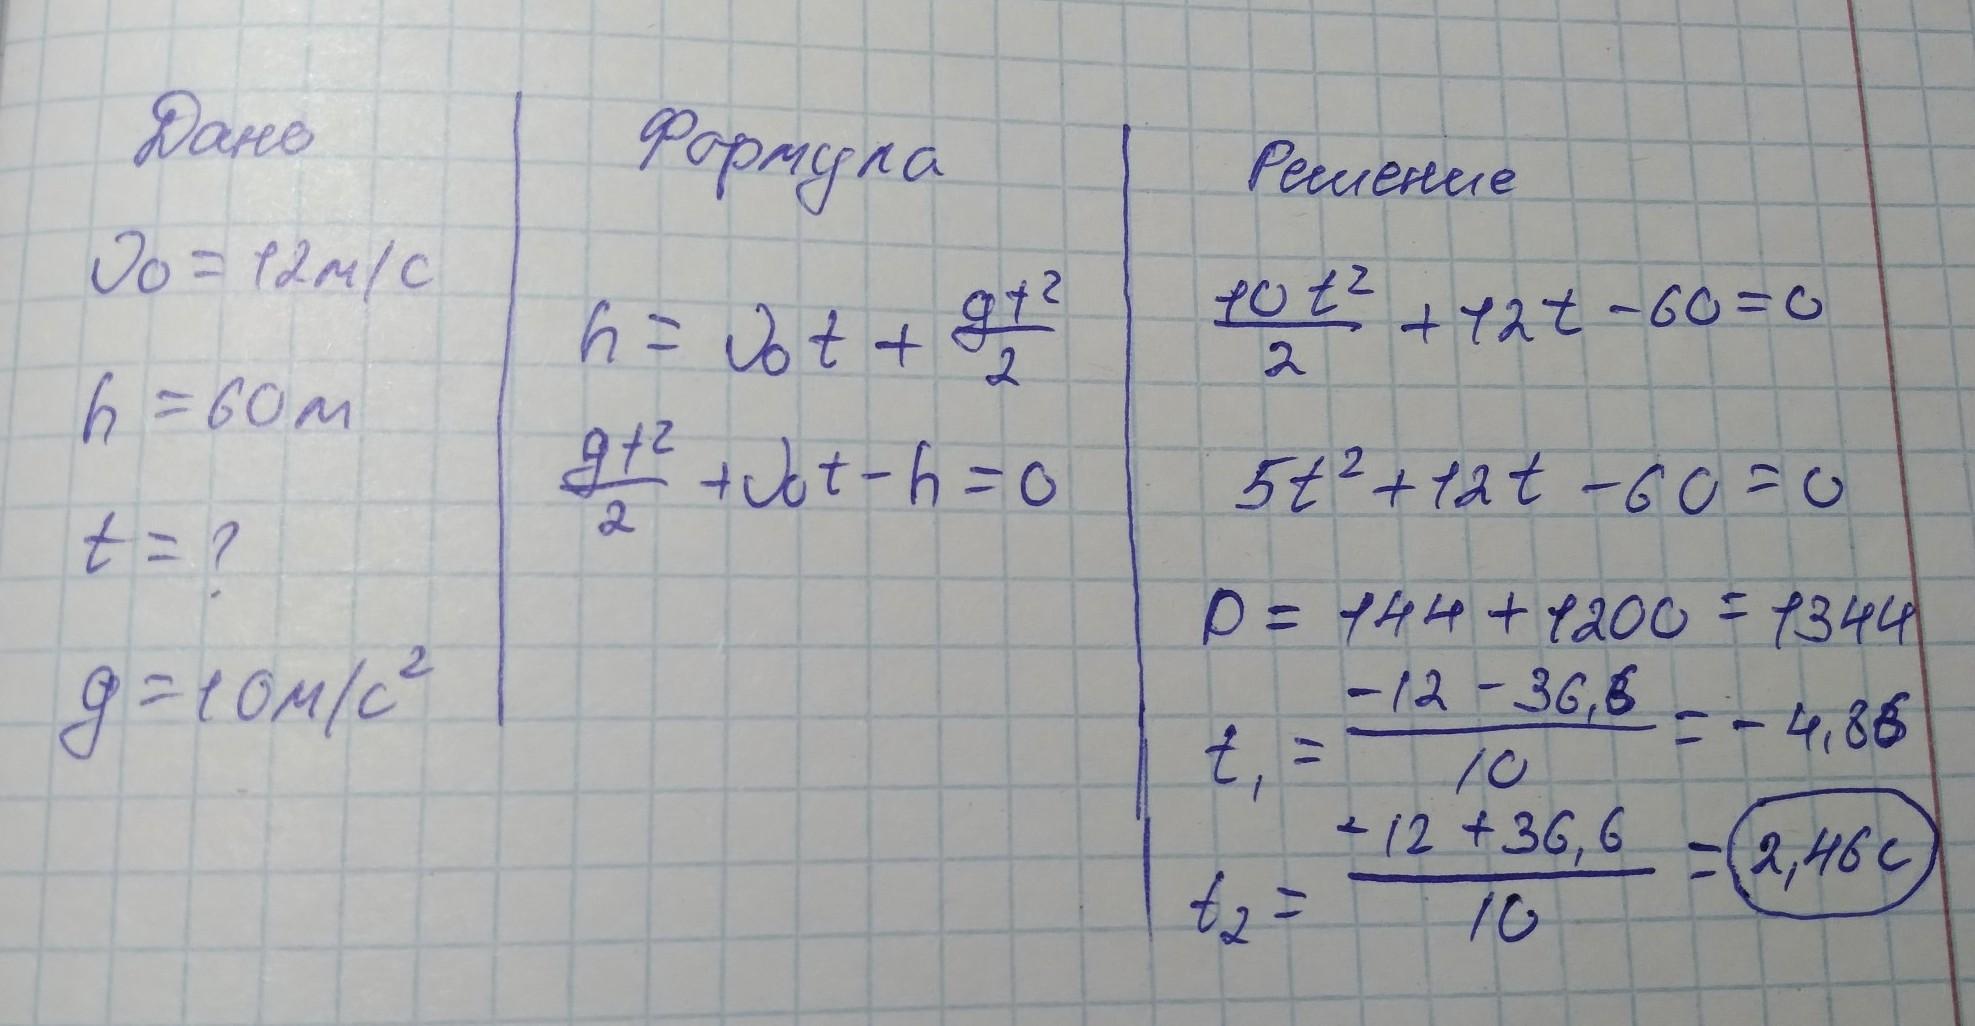 Дано
υ₀ = 12м/с
h = 60м
t = ?
g = 10м/с²
Формула
h = υ₀t + gt²/2
gt²/2 + υ₀t - h = 0
Решение
10t²/2 + 12t - 60 = 0
5t² + 12t - 60 = 0
D = 144 + 1200 = 1344
t₁ = (-12 - 36,6)/10 = -4,86
t₂ = (-12 + 36,6)/10 = 2,46с